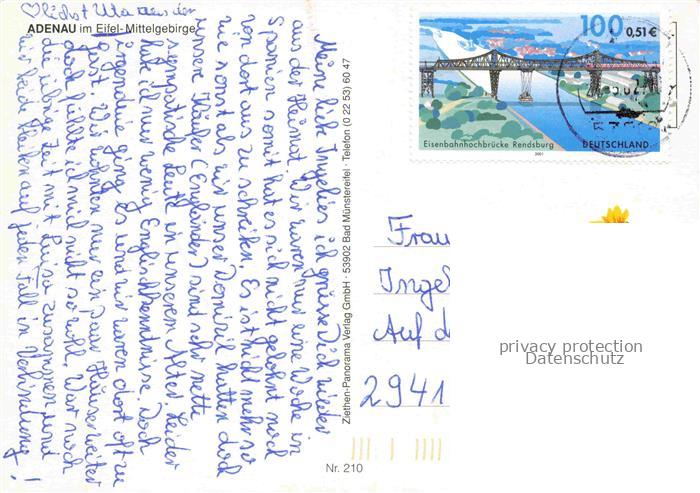 ♡lichst
ADENAU im Eifel-Mittelgebirge
Meine liebe Ingeliese ich grüsse Dich wieder
aus der Heimat. Wir waren nur eine Woche in
Spanien somit hat es sich nicht gelohnt noch
von dort aus zu schreiben. Es ist nicht mehr so
wie sonst als wir unser Domizil hatten doch
unsere Käufer (Engländer) sind sehr nette
sympatische Leute in unserem Alter leider
habe ich nur wenig Englischkenntnisse. Doch
irgendwie ging es und wir waren dort oft zu
Gast. Wir wohnen nur ein paar Häuser weiter
doch fühlte ich mich nicht so wohl. War noch
die übrige Zeit mit Luisa zusammen und
wir beide bleiben auf jeden Fall in Verbindung!
Ziethen-Panorama Verlag GmbH · 53902 Bad Münstereifel · Telefon (0 22 53) 60 47
100 0,51€
Eisenbahnhochbrücke Rendsburg
2001
DEUTSCHLAND
Frau
Ingel
Auf d
2941
privacy protection
Datenschutz
Nr. 210